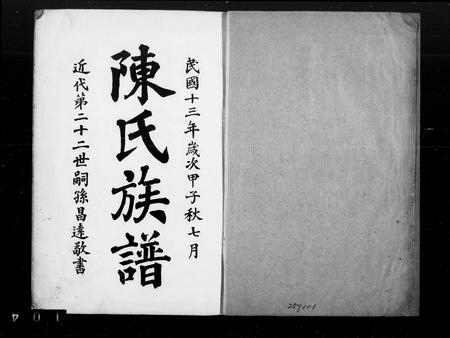 民國十三年歲次甲子秋七月
陳氏族譜
近代第二十二世嗣孫昌遠敬書